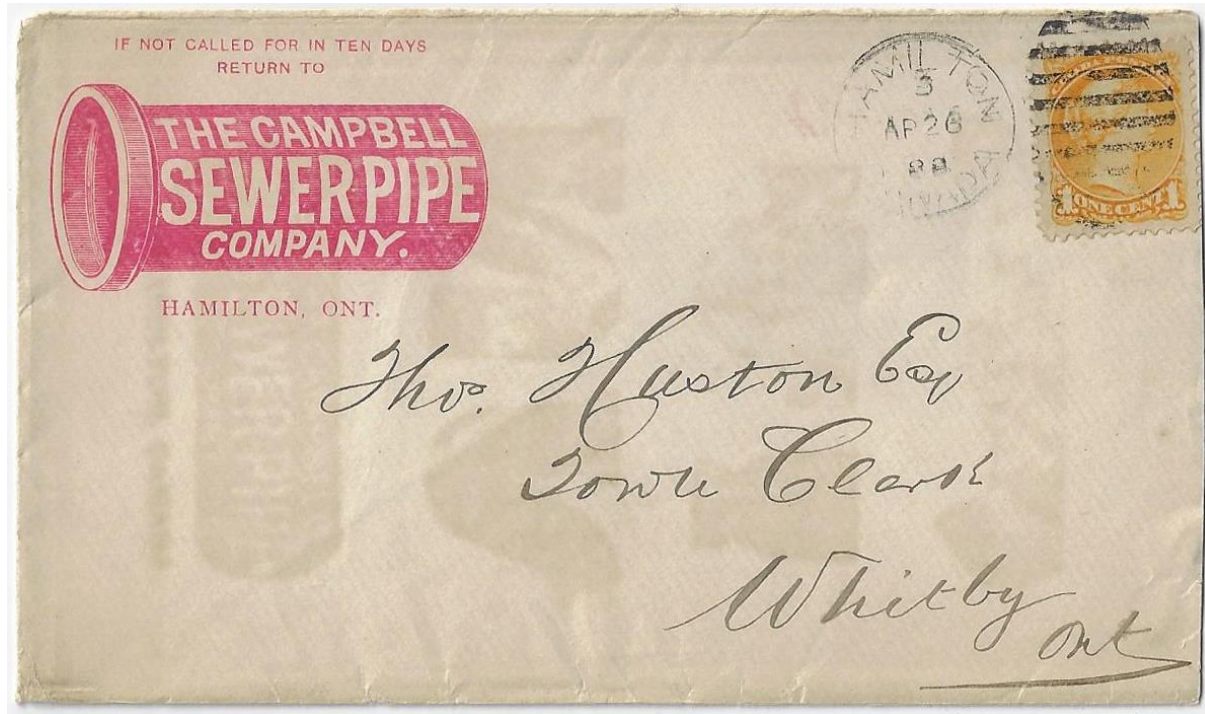 IF NOT CALLED FOR IN TEN DAYS
RETURN TO
THE CAMPBELL
SEWER PIPE
COMPANY.
HAMILTON, ONT.
HAMILTON
5
AP 26
88
CANADA
1 ONE CENT 1
Thos. Huston Esq
Town Clerk
Whitby
Ont